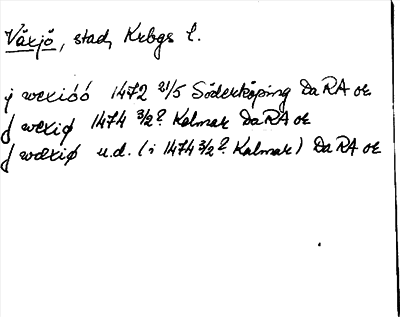 Växjö, stad, Krbgs l.
j wexióó 1472 21/5 Söderköping Da RA or
J wexiø 1474 3/2? Kalmar Da RA or
J wæxiø u.d. (: 1474 3/2? Kalmar) Da RA or